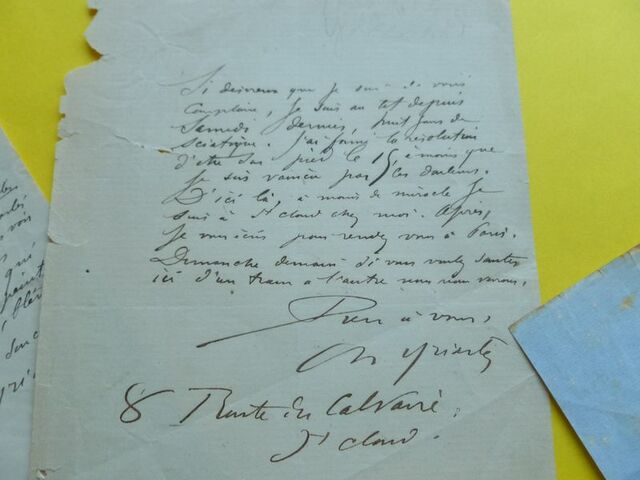 Si désireux que je sois de vous
complaire, je suis au lit depuis
Samedi dernier, pris de
sciatique. j'ai formé la résolution
d'être sur pied le 15, à moins que
je sois vaincu par les douleurs.
D'ici là, à moins de miracle je
suis à St cloud chez moi. Après,
je vous écris pour rendez vous à Paris.
Demanche demain si vous voulez sauter
ici d'un train à l'autre nous nous verrons.
Bien à vous,
Ch Yriarte
8 Route du Calvaire.
St cloud.